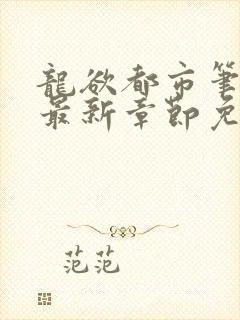 龍欲都市筆
最新章節免
范范